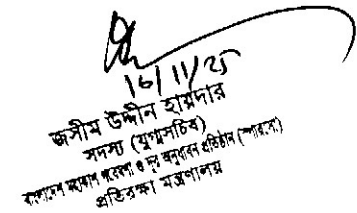 16/11/25
জসীম উদ্দীন হায়দার
সদস্য (যুগ্মসচিব)
বাংলাদেশ মহাকাশ গবেষণা ও দূর অনুধাবন প্রতিষ্ঠান (স্পারসো)
প্রতিরক্ষা মন্ত্রণালয়